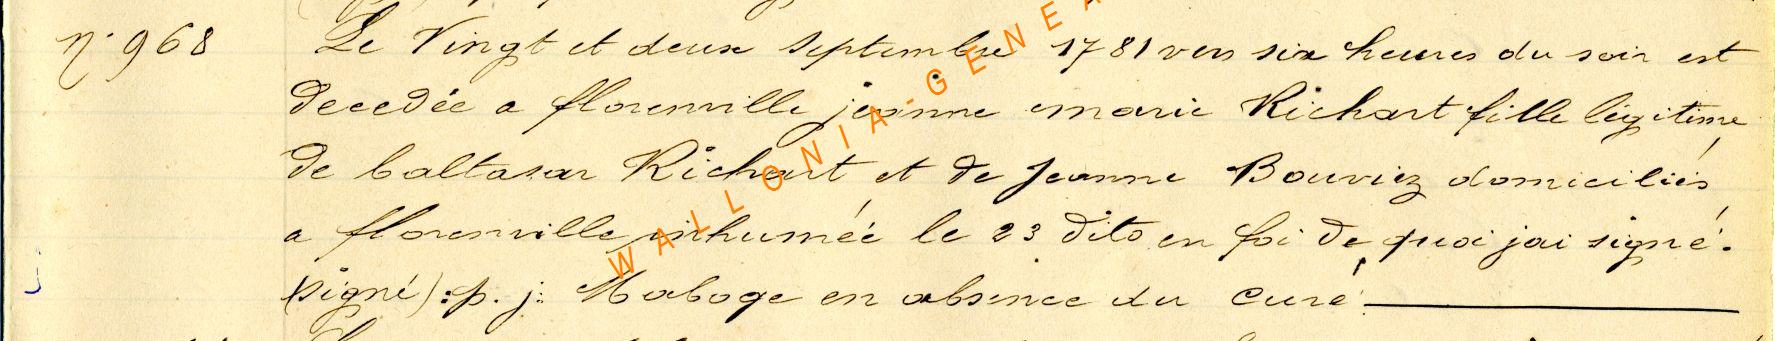 n° 968 Le Vingt et deux septembre 1781 vers six heures du soir est
decedée a florenville jeanne marie Richart fille légitime
de baltasar Richart et de Jeanne Bouviez domiciliés
a florenville inhumée le 23 dito en foi de quoi jai signé.
(signé): p. j: Maboge en absence du curé
WALLONIA-GENEA